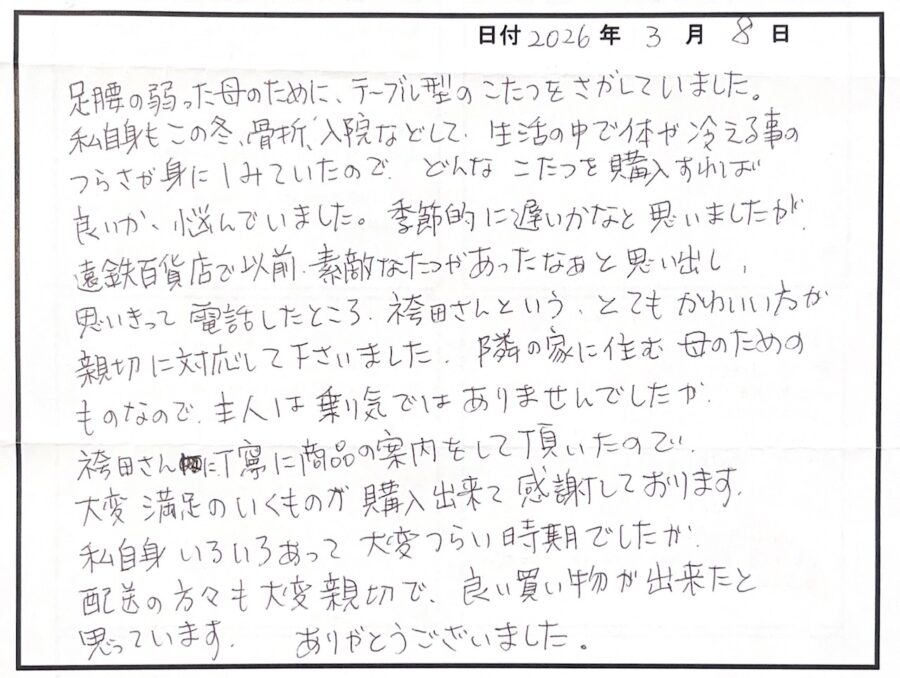 日付 2026 年 3 月 8 日
足腰の弱った母のために、テーブル型のこたつをさがしていました。
私自身もこの冬、骨折、入院などして、生活の中で体が冷える事の
つらさが身にしみていたので、どんなこたつを購入すれば
良いか、悩んでいました。季節的に遅いかなと思いましたが、
遠鉄百貨店で以前、素敵なたつがあったなぁと思い出し、
思いきって電話したところ、袴田さんという、とてもかわいい方が
親切に対応して下さいました。隣の家に住む母のための
ものなので、主人は乗り気ではありませんでしたが、
袴田さんに丁寧に商品の案内をして頂いたので、
大変満足のいくものが購入出来て感謝しております。
私自身いろいろあって大変つらい時期でしたが、
配送の方々も大変親切で、良い買い物が出来たと
思っています。 ありがとうございました。